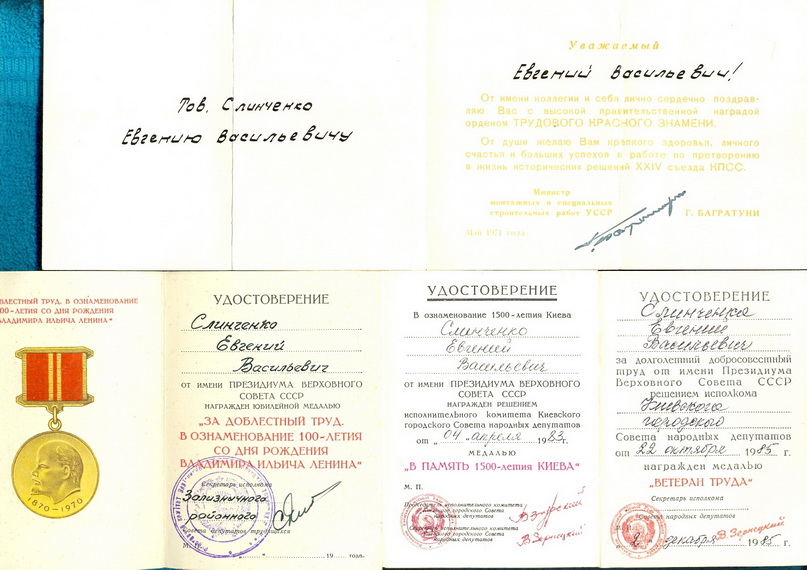 Тов. Слинченко
Евгению Васильевичу
Уважаемый
Евгений Васильевич!
От имени коллегии и себя лично сердечно поздрав-
ляю Вас с высокой правительственной наградой
орденом ТРУДОВОГО КРАСНОГО ЗНАМЕНИ.
От души желаю Вам крепкого здоровья, личного
счастья и больших успехов в работе по претворению
в жизнь исторических решений XXIV съезда КПСС.
Министр
монтажных и специальных
строительных работ УССР
Г. БАГРАТУНИ
Май 1971 года
ДОБЛЕСТНЫЙ ТРУД. В ОЗНАМЕНОВАНИЕ
100-ЛЕТИЯ СО ДНЯ РОЖДЕНИЯ
ВЛАДИМИРА ИЛЬИЧА ЛЕНИНА"
1870-1970
УДОСТОВЕРЕНИЕ
Слинченко
Евгений
Васильевич
от имени ПРЕЗИДИУМА ВЕРХОВНОГО
СОВЕТА СССР
НАГРАЖДЕН ЮБИЛЕЙНОЙ МЕДАЛЬЮ
„ЗА ДОБЛЕСТНЫЙ ТРУД.
В ОЗНАМЕНОВАНИЕ 100-ЛЕТИЯ
СО ДНЯ РОЖДЕНИЯ
ВЛАДИМИРА ИЛЬИЧА ЛЕНИНА"
Секретарь исполкома
Зализничного
районного
Совета депутатов трудящихся
19 года.
УДОСТОВЕРЕНИЕ
В ознаменование 1500-летия Киева
Слинченко
Евгений
Васильевич
от имени ПРЕЗИДИУМА ВЕРХОВНОГО
СОВЕТА СССР
НАГРАЖДЕН РЕШЕНИЕМ
исполнительного комитета Киевского
городского Совета народных депутатов
от „04 апреля 1983 г.
МЕДАЛЬЮ
„В ПАМЯТЬ 1500-летия КИЕВА"
М. П.
Председатель исполнительного комитета
Киевского городского Совета
народных депутатов
Секретарь исполнительного комитета
Киевского городского Совета
народных депутатов
УДОСТОВЕРЕНИЕ
Слинченко
Евгений
Васильевич
за долголетний добросовестный
труд от имени Президиума
Верховного Совета СССР
решением исполкома
Киевского
городского
Совета народных депутатов
от 22 октября 1985 г.
награжден медалью
„ВЕТЕРАН ТРУДА"
Секретарь исполкома
Совета народных депутатов
2 декабря 1985 г.